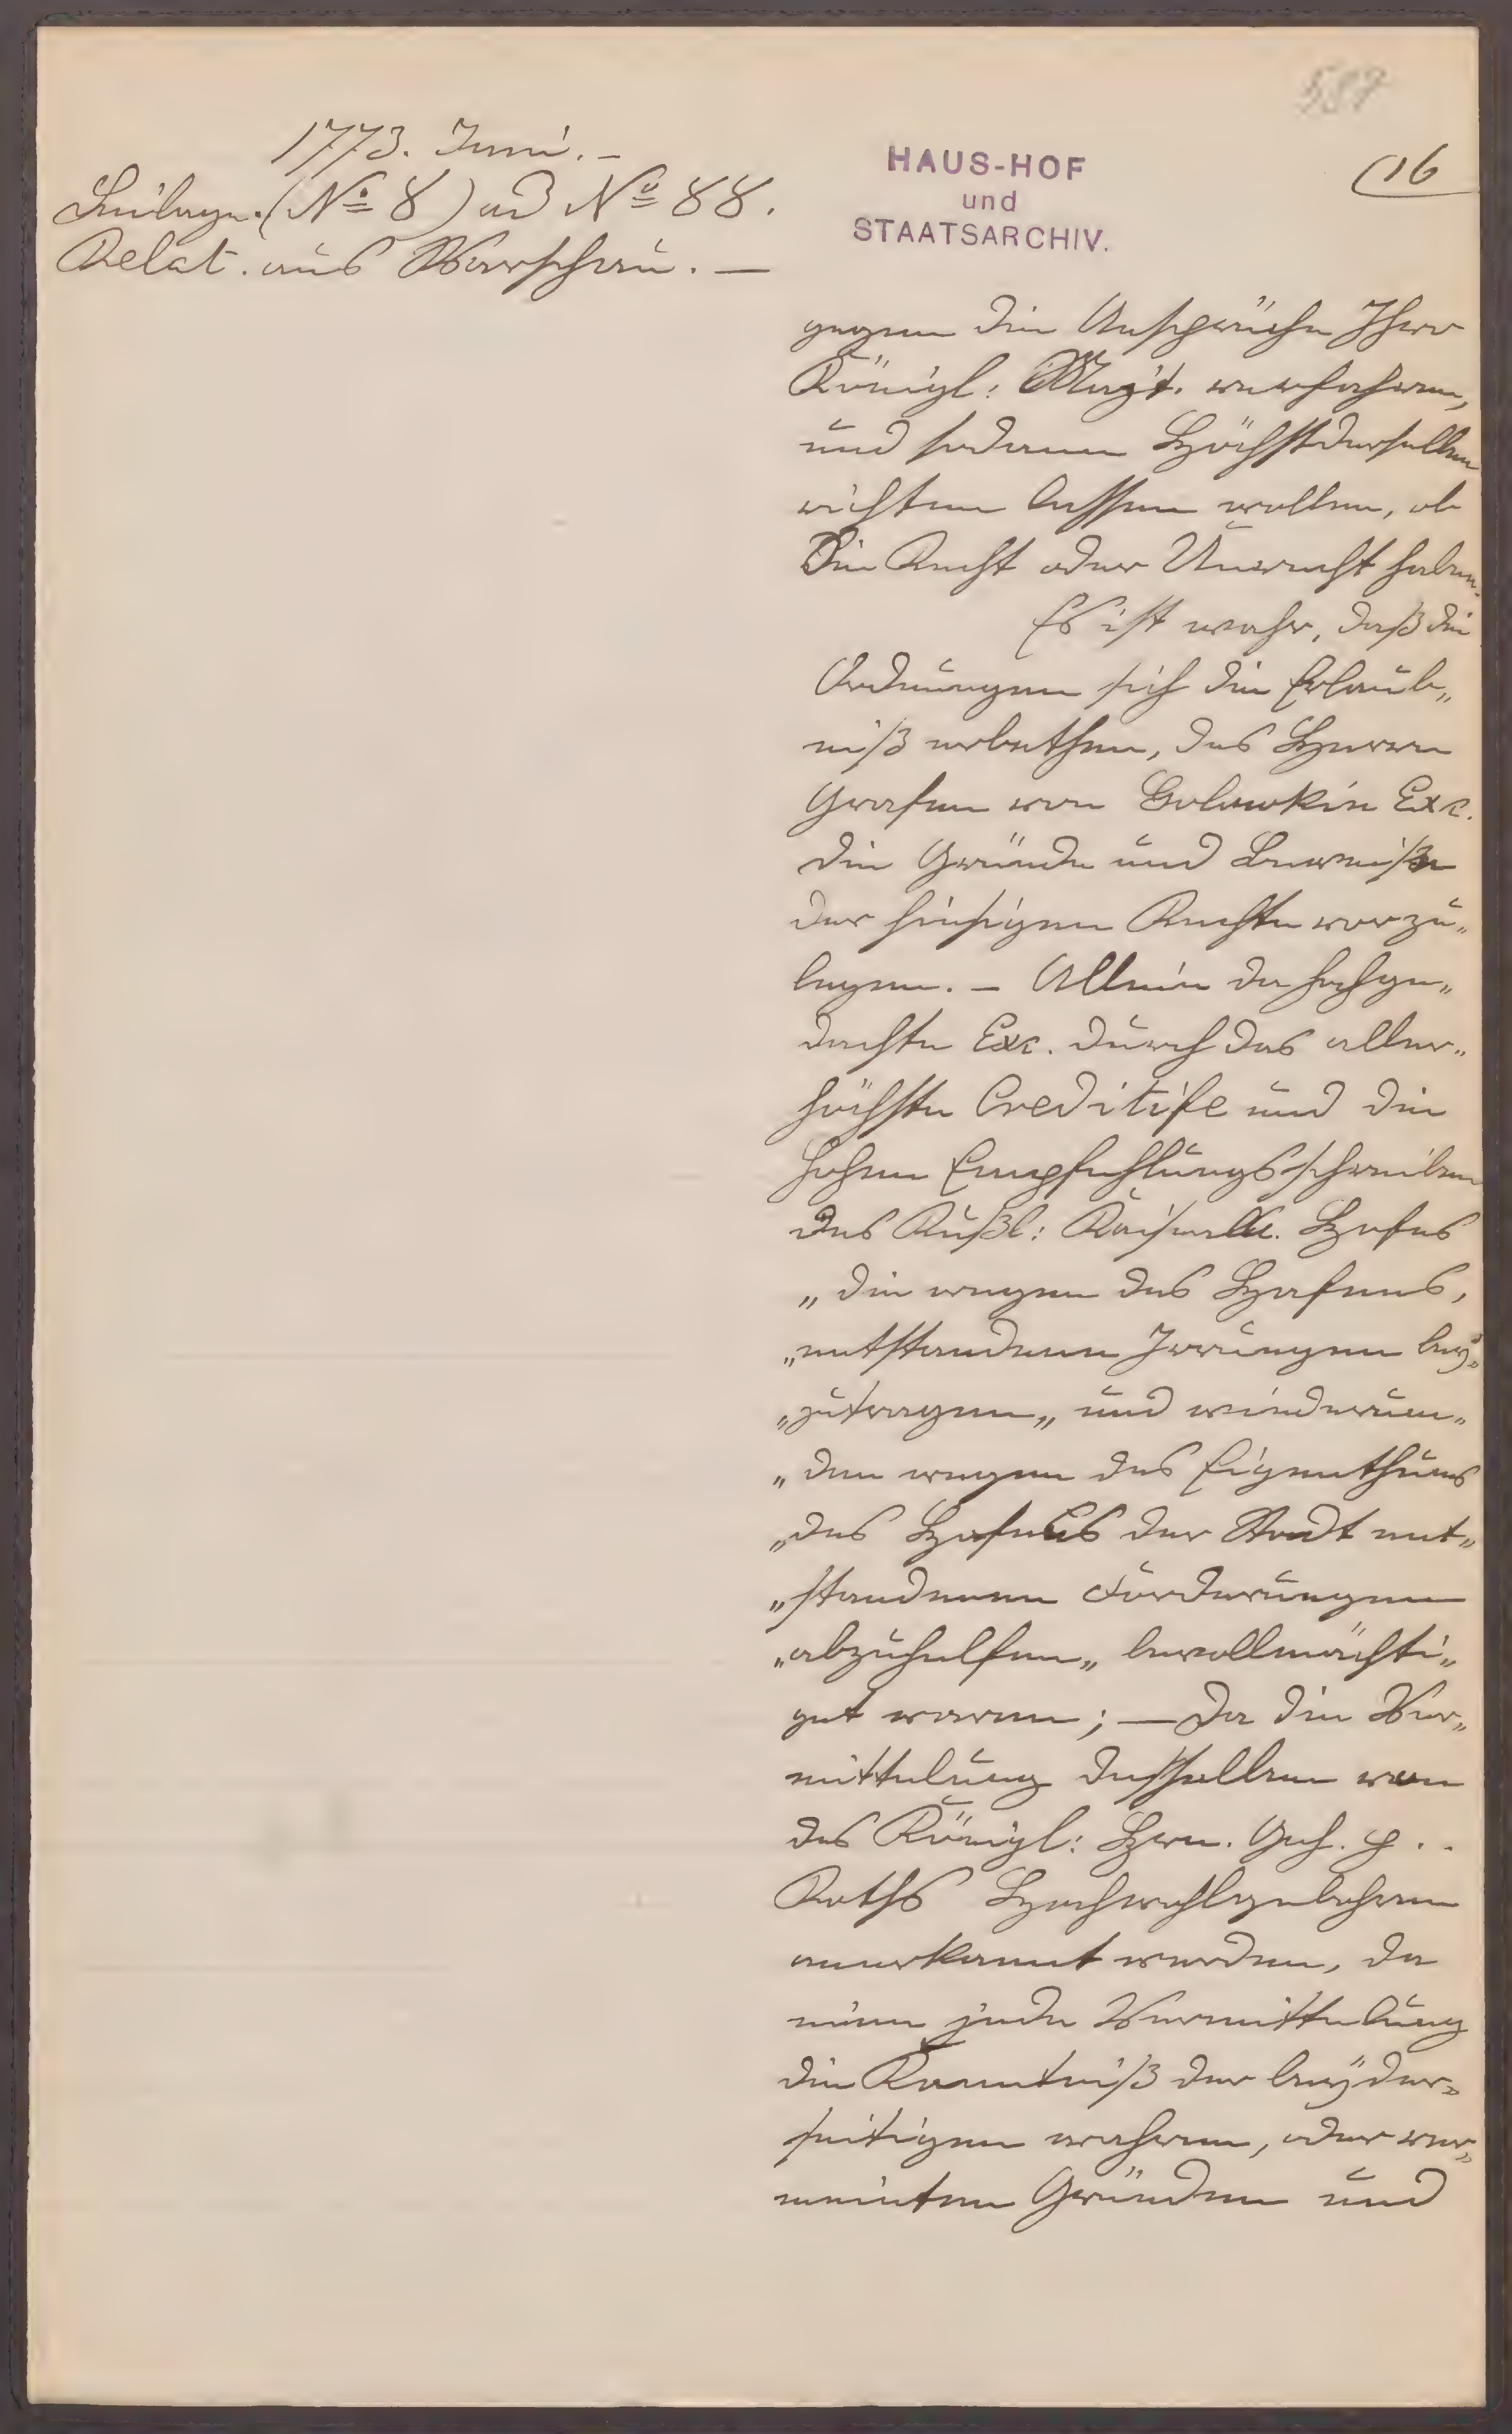 587
1773. Juni. –
Beilage. (No 8) ad No 88.
Relat. aus Warschau. –
HAUS-HOF
und
STAATSARCHIV.
(16
gegen die Ansprüche Ihro
Königl: Majt. verfahren,
und sodann Höchstderselben
richten lassen wollen, ob
Sie Recht oder Unrecht haben.
Es ist wahr, daß die
Ordnungen sich die Erlaub„
niß erbethen, des Herrn
Grafen von Golowkin Exc.
die Gründe und Beweiße
der hiesigen Rechte vorzu„
legen. – Allein da hochge„
dachte Exc. durch das aller„
höchste Creditife und die
hohen Empfehlungsschreiben
des Rußl: Kaiserll. Hofes
„die wegen des Hafens,
„entstandenen Irrungen bey„
„zutragen„ und wiederum„
„den wegen des Eigenthums
„des Hafens der Stadt ent„
„standenen Forderungen
„abzuhelfen„ bevollmächti„
get waren; – da die Ver„
mittelung desselben von
des Königl: Hrn. Geh. p. .
Raths Hochwohlgebohren
anerkannt worden, da
eine jede Vermittelung
die Kenntniß der beyder„
seitigen wahren, oder ver„
meinten Gründen und